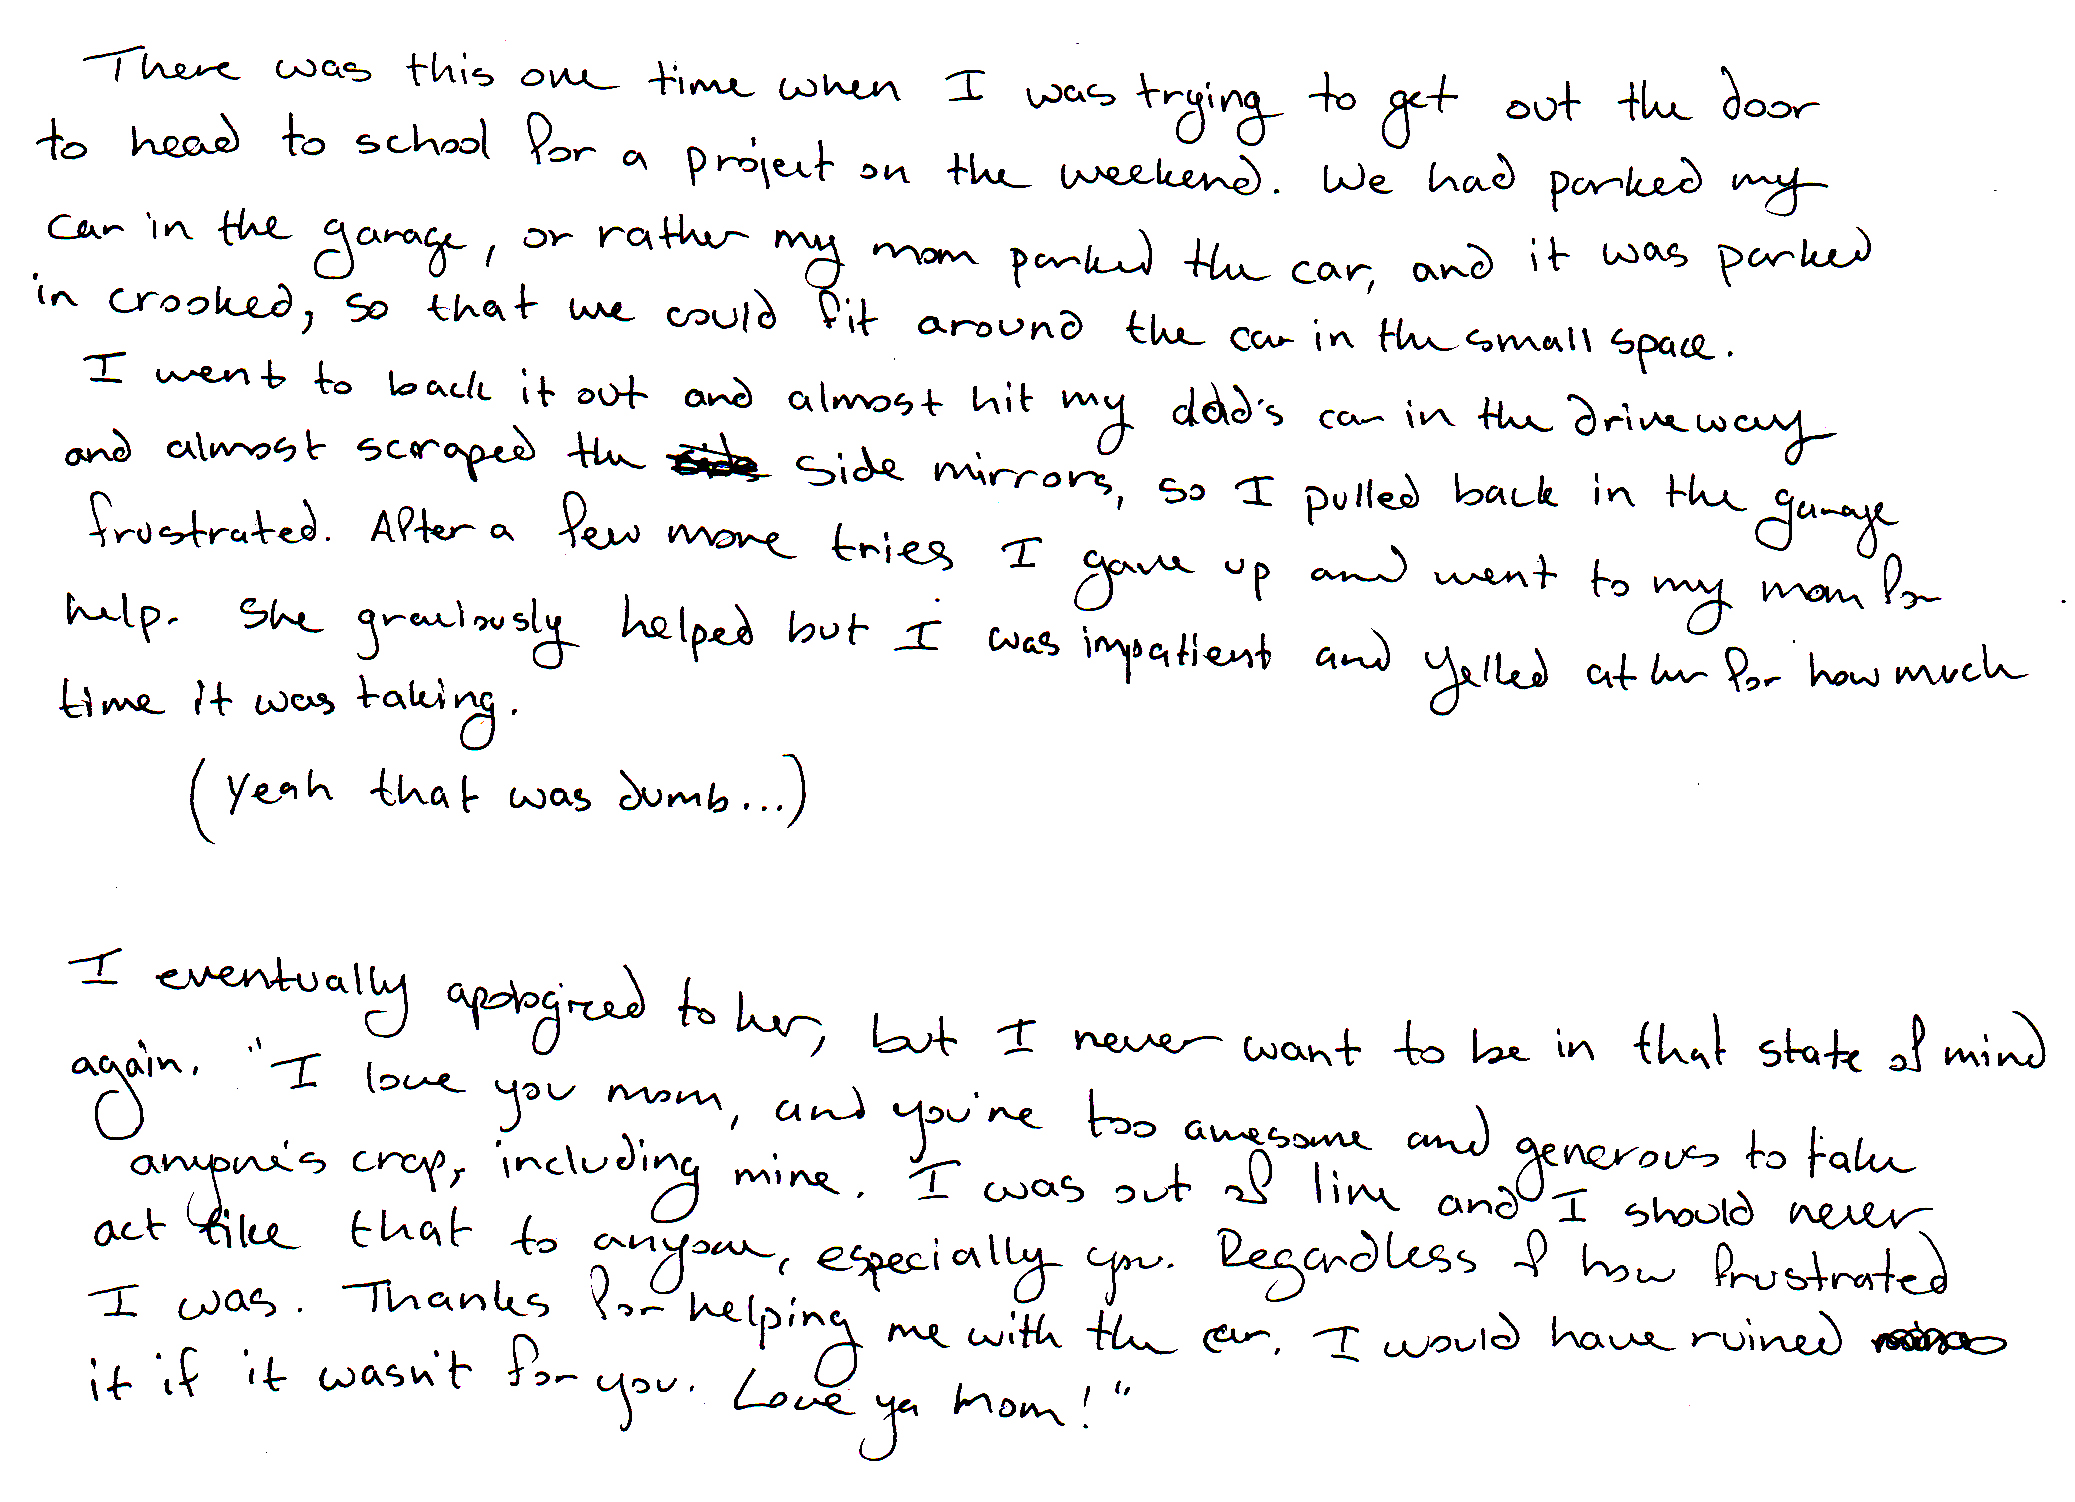 There was this one time when I was trying to get out the door
to head to school for a project on the weekend. We had parked my
car in the garage, or rather my mom parked the car, and it was parked
in crooked, so that we could fit around the car in the small space.
I went to back it out and almost hit my dad's car in the driveway
and almost scraped the side mirrors, so I pulled back in the garage
frustrated. After a few more tries I gave up and went to my mom for
help. She graciously helped but I was impatient and yelled at her for how much
time it was taking.
(Yeah that was dumb...)
I eventually apologized to her, but I never want to be in that state of mind
again. "I love you mom, and you're too awesome and generous to take
anyone's crap, including mine. I was out of line and I should never
act like that to anyone, especially you. Regardless of how frustrated
I was. Thanks for helping me with the car. I would have ruined
it if it wasn't for you. Love ya Mom!"